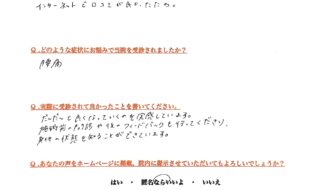 インターネット口コミが良かったため。
Q.どのような症状にお悩みで当院を受診されましたか？
腰痛
Q.実際に受診されて良かったことを書いてください。
だんだんと良くなっていくのを実感しています。
施術前の問診や後のフィードバックも行ってくださり、
身体の状態を知ることができています。
Q.あなたの声をホームページに掲載、院内に提示させていただいてもよろしいでしょうか？
はい ・ 匿名ならいいよ ・ いいえ